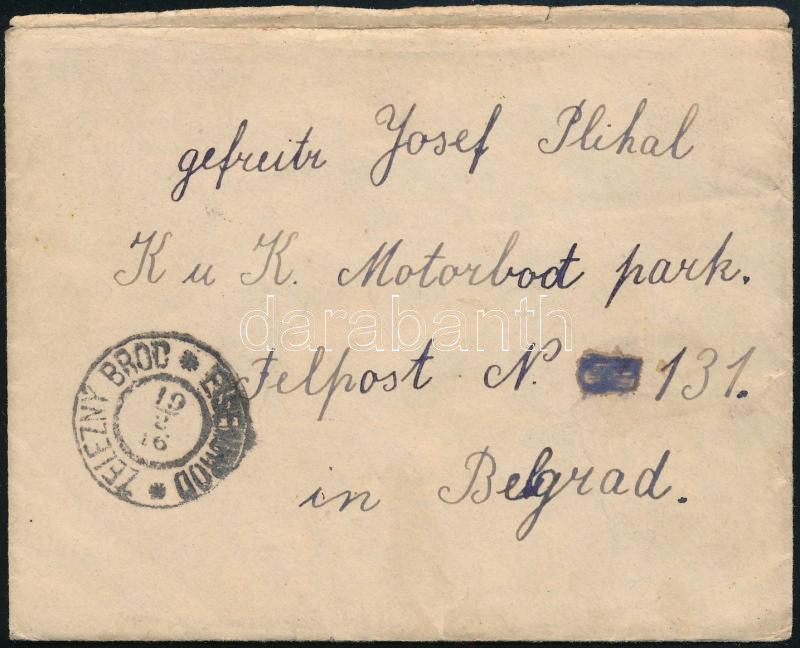 gefreitr Josef Plihal
K u K. Motorboot park.
Felpost N. 131.
in Belgrad.
ŽELEZNY BROD * EISENBROD *
19
16.
darabanth